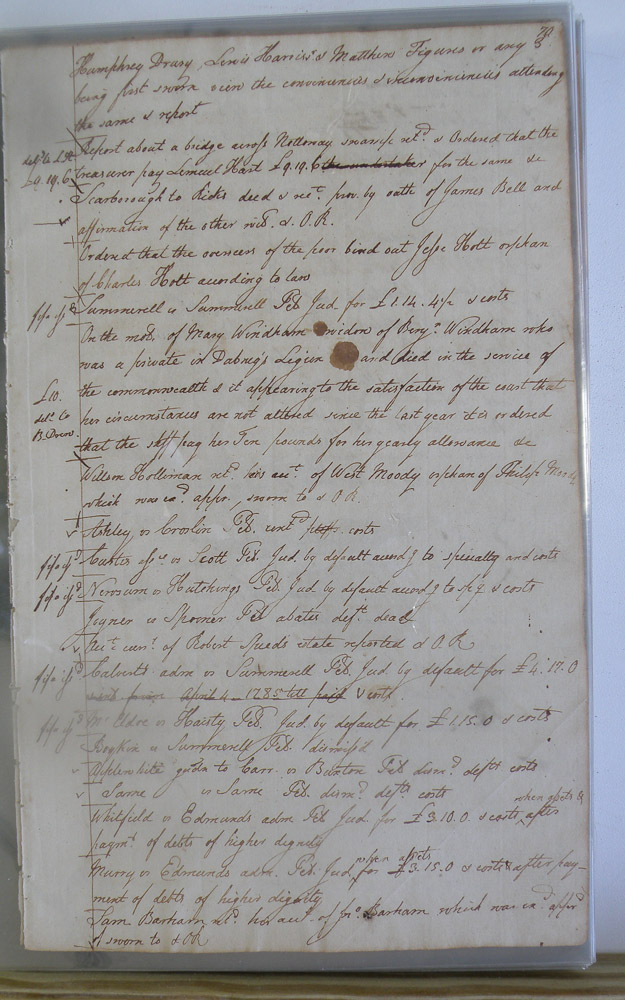 Humphrey Drury, Lewis Harris & Matthew Figures or any 3
being first sworn view the conveniencies & inconveniencies attending
the same & report
Report about a bridge across Nottoway swamp retd & Ordered that the
treasurer pay Lemuel Hart £9.19.6 the undertaker for the same &c
£9.19.6
Scarborough to Ricks deed & rect. prov. by oath of James Bell and
affirmation of the other wits. & O.R.
Ordered that the overseers of the poor bind out Jesse Holt orphan
of Charles Holt according to law
Summerell vs Summerell Pet. Jud for £1.14.4½ & costs
On the mot. of Mary Windham widow of Benja. Windham who
was a private in Dabney's Legion and died in the service of
the commonwealth & it appearing to the satisfaction of the court that
£10.
her circumstances are not altered since the last year it is ordered
B. Drew
that the shff pay her Ten pounds for her yearly allowance &c
Willson Holliman retd. his acct. of West Moody orphan of Philip Moody
which was exd. appr., sworn to & O.R.
Ashley vs Croslin Pet. contd costs
Carter asse. vs Scott Pet. Jud. by default accordg to specialty and costs
Newsum vs Hutchings Pet. Jud by default accordg to spy & costs
Joyner vs Spooner Pet abates deft. dead
Acct. curt. of Robert Speed's estate reported & O.R
Calverts adm vs Summerell Pet. Jud. by default for £4.17.0
April 4 1785 till paid & costs
Haisty Pet. Jud. by default for £1.15.0 & costs
Boykin vs Summerell Pet. dismist
gudn to Carr vs Burton Pet. dismd. defts costs
Same vs Same Pet. dismd. defts costs
when assets &
Whitfield vs Edmunds adm Pet Jud for £3.10.0 & costs after
paymt of debts of higher dignity
when assets
Murry vs Edmunds adm. Pet. Jud. for £3.15.0 & costs & after pay-
ment of debts of higher dignity
Barham retd. her acct. of Jno. Barham which was exd. apprd
sworn to & O.R